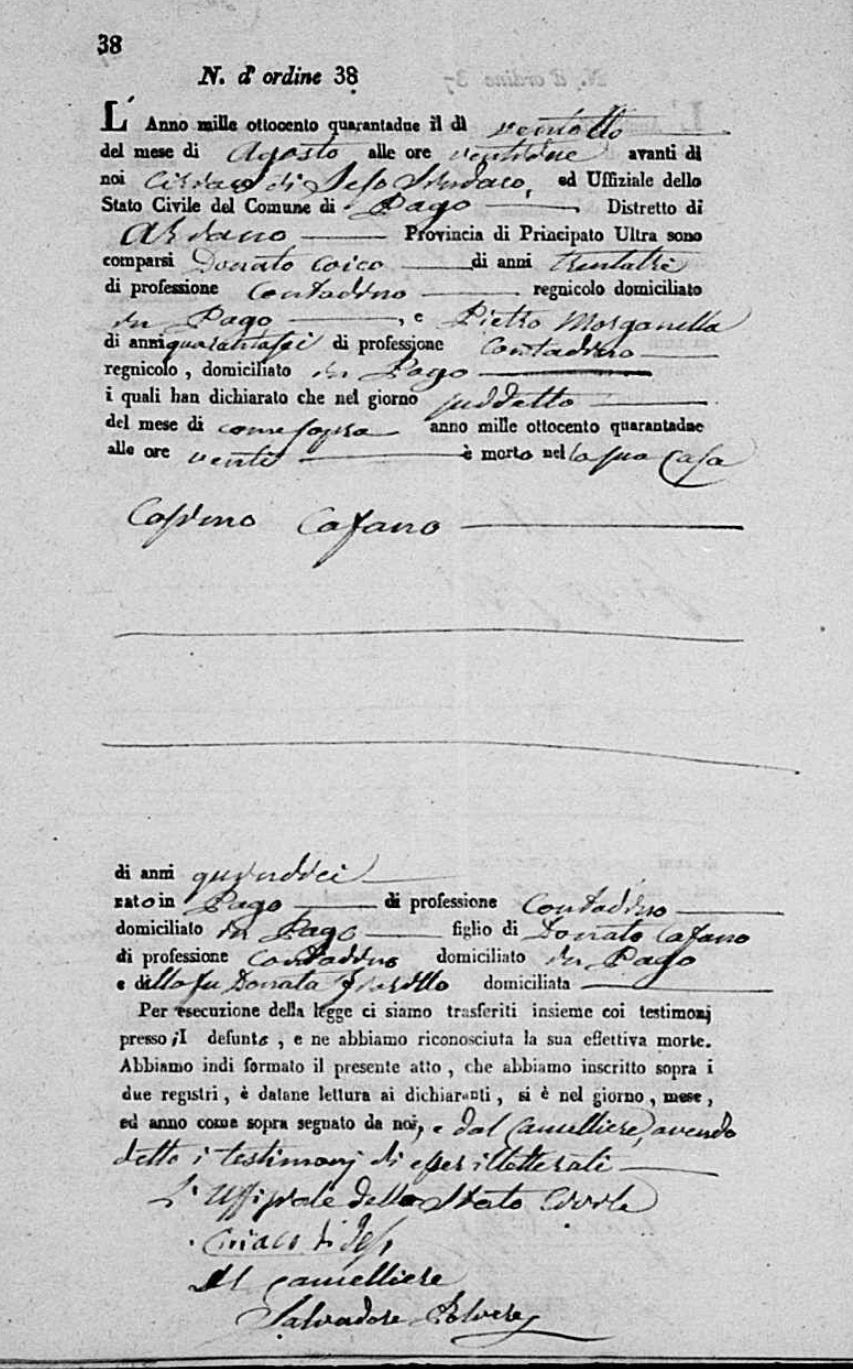 38
N. d' ordine 38
L' Anno mille ottocento quarantadue il dì ventotto
del mese di Agosto alle ore ventidue avanti di
noi Ciriaco di Jeso Sindaco, ed Uffiziale dello
Stato Civile del Comune di Pago Distretto di
Ariano Provincia di Principato Ultra sono
comparsi Donato Coico di anni trentatre
di professione Contadino regnicolo domiciliato
in Pago , e Pietro Morganella
di anni quarantasei di professione Contadino
regnicolo , domiciliato in Pago
i quali han dichiarato che nel giorno suddetto
del mese di come sopra anno mille ottocento quarantadue
alle ore venti è morto nella sua Casa
Cosimo Cafano
di anni quindici
nato in Pago di professione Contadino
domiciliato in Pago figlio di Donato Cafano
di professione Contadino domiciliato in Pago
e della fu Donata domiciliata
Per esecuzione della legge ci siamo trasferiti insieme coi testimonj
presso il defunto , e ne abbiamo riconosciuta la sua effettiva morte.
Abbiamo indi formato il presente atto , che abbiamo inscritto sopra i
due registri , è datane lettura ai dichiaranti , si è nel giorno , mese ,
ed anno come sopra segnato da noi, e dal Cancelliere, avendo
detto i testimonj di esser illetterati
L' Uffiziale dello Stato Civile
Ciriaco di Jeso
Il Cancelliere
Salvadore Polvere